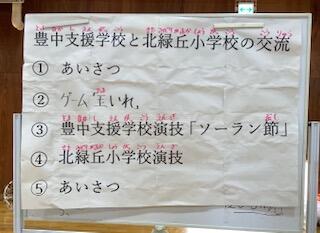 豊中支援学校と北緑丘小学校の交流
① あいさつ
② ゲーム 玉いれ
③ 豊中支援学校演技「ソーラン節」
④ 北緑丘小学校演技
⑤ あいさつ